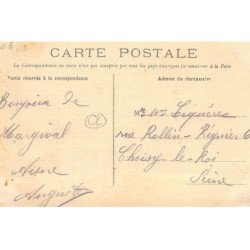 CARTE POSTALE
La Correspondance au recto n'est pas acceptée par tous les pays étrangers (se renseigner à la Poste)
Partie réservée à la correspondance
Adresse du destinataire
Bonjour de
Margival
Aisne
Auguste
rue Rollin-Régnier
Choisy-le-Roi
Seine